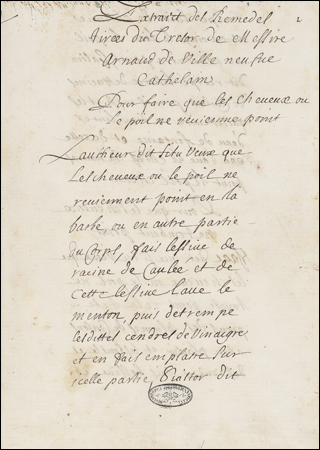 Extraict des Remedes
tirées du Tresor de Messire
Arnaud de Ville neufue
Cathelam
Pour faire que les cheueux ou
le poil ne reuienne point
Lautheur dit si tu veux que
les cheueux ou le poil ne
reuiennent point en la
barbe ou en autre partie
du Corps, fais lessiue de
racine de Caulée et de
cette lessiue laue le
menton puis detrempe
lesdittes cendres de vinaigre
et en fais emplatre sur
icelle partie, dit